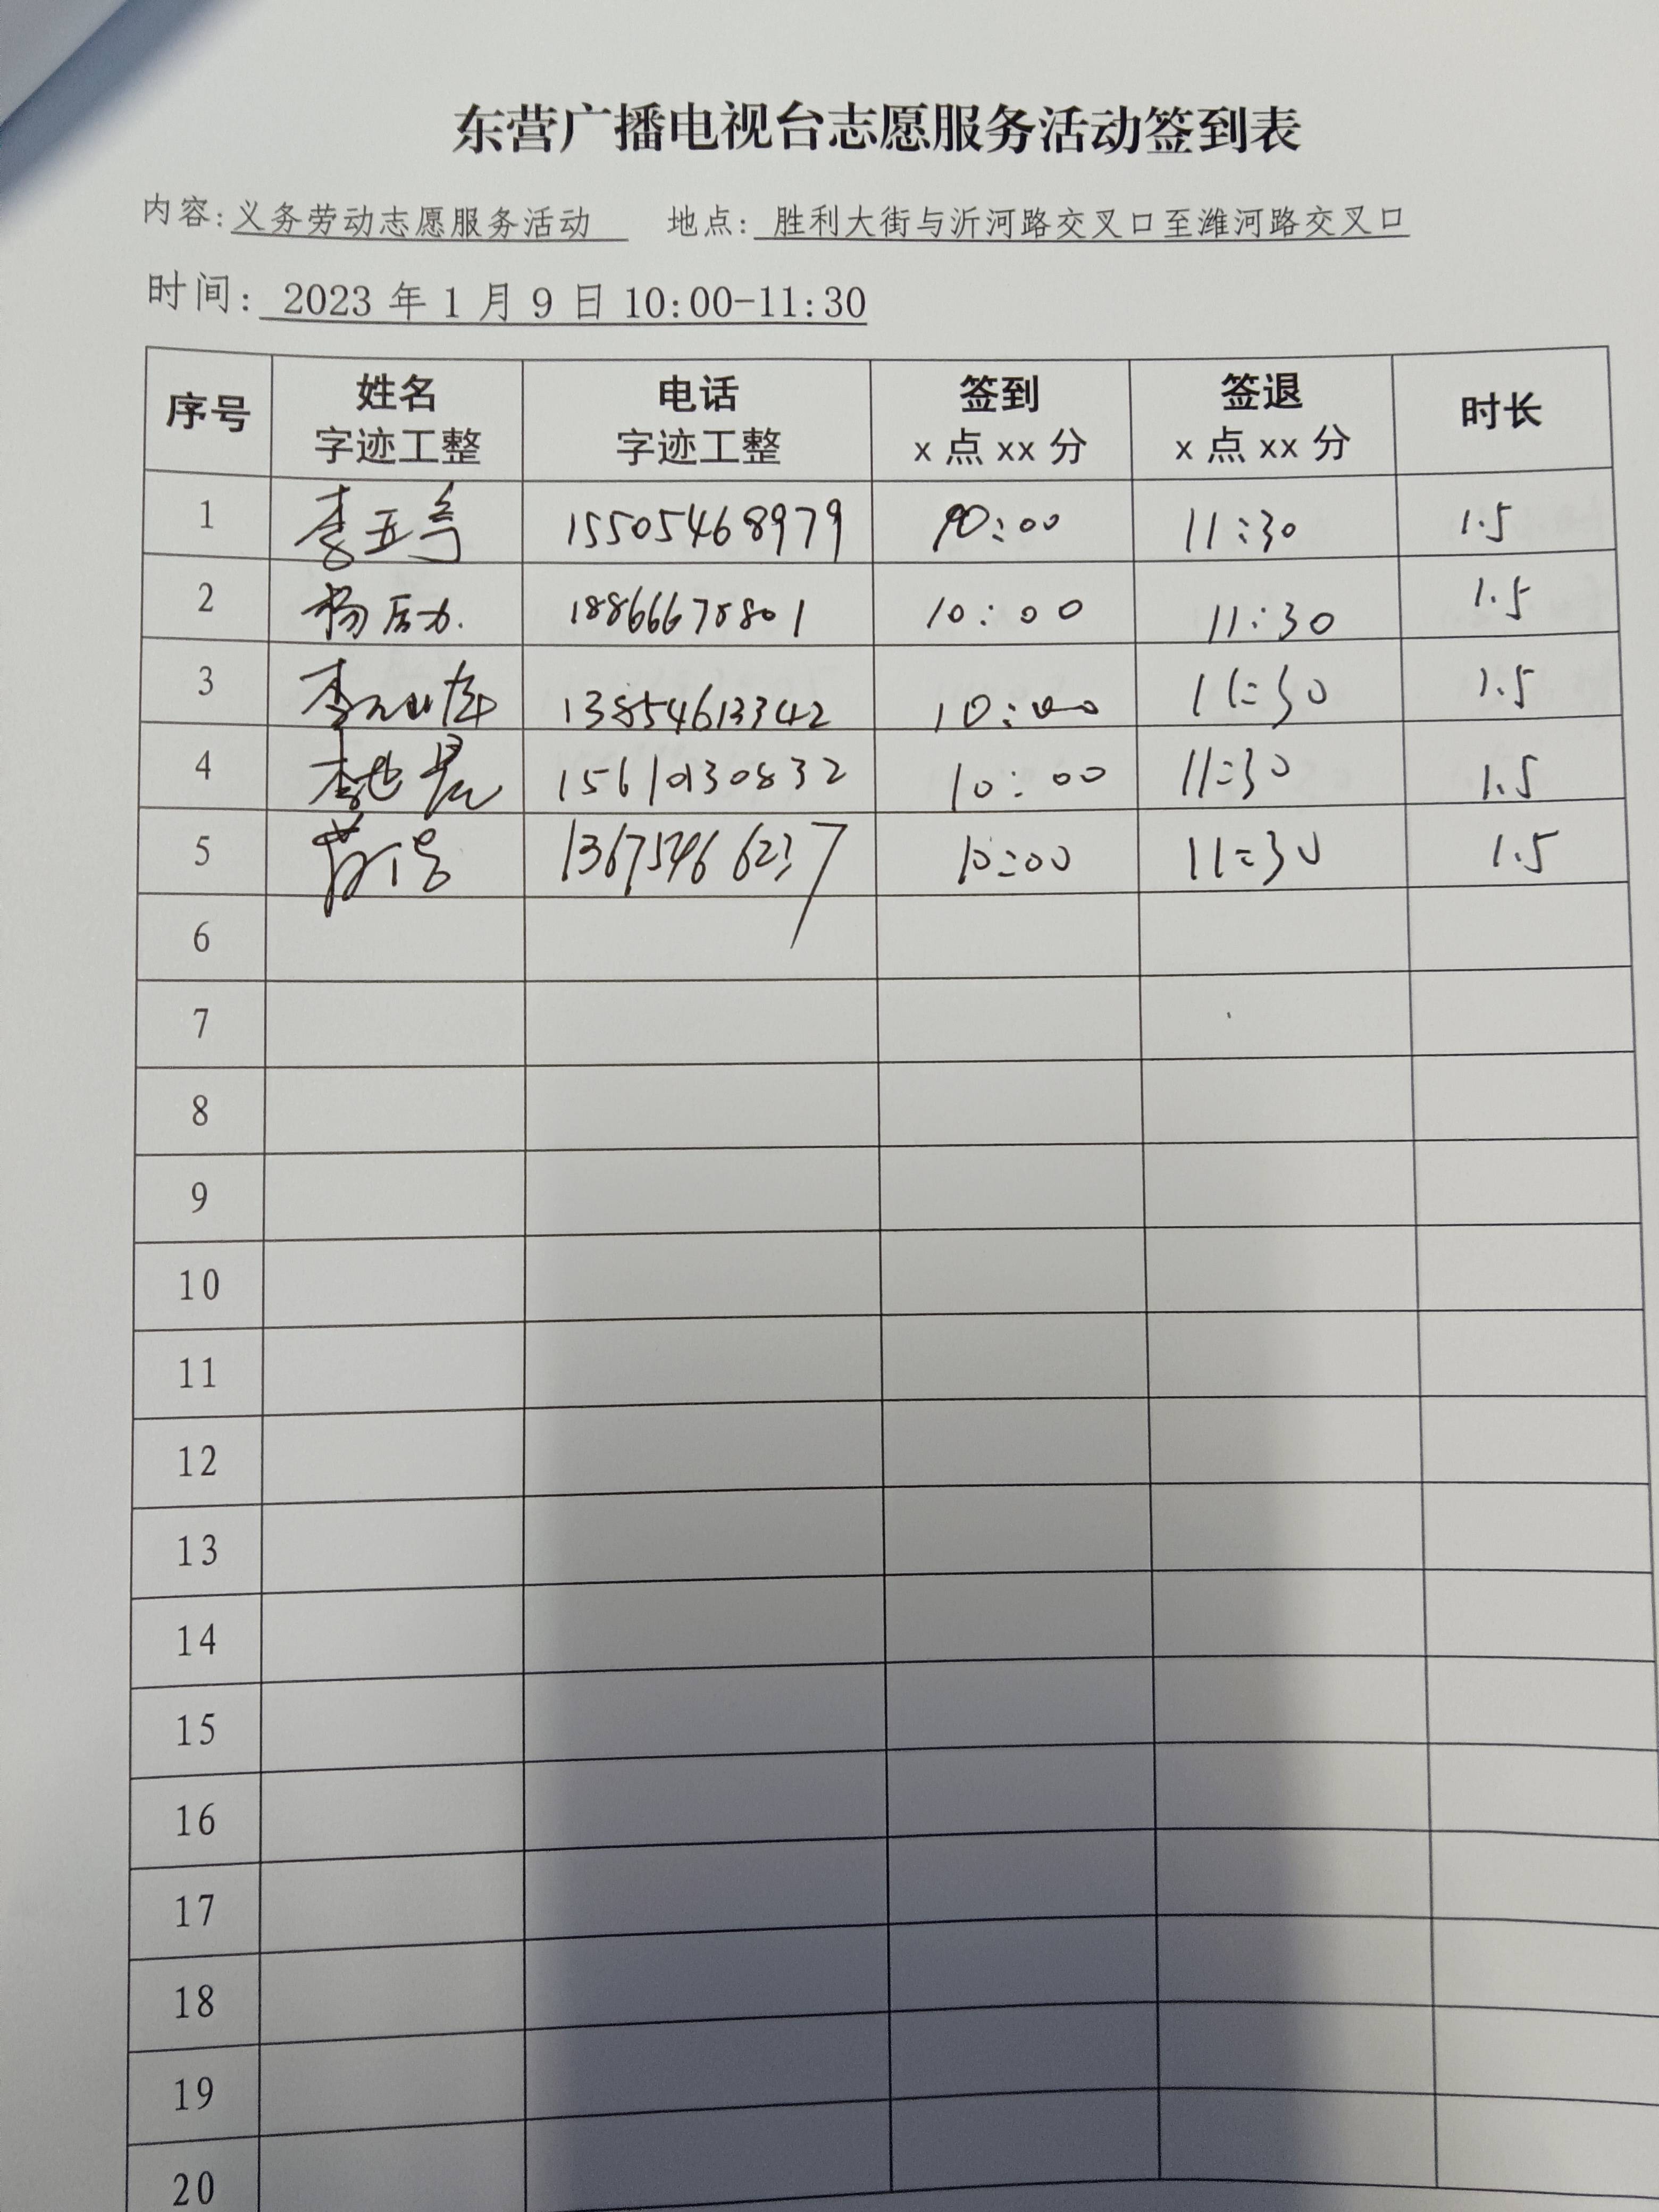 东营广播电视台志愿服务活动签到表
内容:义务劳动志愿服务活动 地点: 胜利大街与沂河路交叉口至潍河路交叉口
时间: 2023年1月9日10:00-11:30
序号 姓名 电话 签到 签退 时长
字迹工整 字迹工整 x点xx分 x点xx分
1 15505468979 10:00 11:30 1.5
2 18866678801 10:00 11:30 1.5
3 13854613342 10:00 11:30 1.5
4 15610130832 10:00 11:30 1.5
5 13675466237 10:00 11:30 1.5
6
7
8
9
10
11
12
13
14
15
16
17
18
19
20